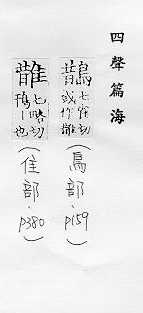 四聲篇海
鵲七雀切或作䧿
(鳥部.p159)
䧿七略切鳱丨也
(隹部.p380)